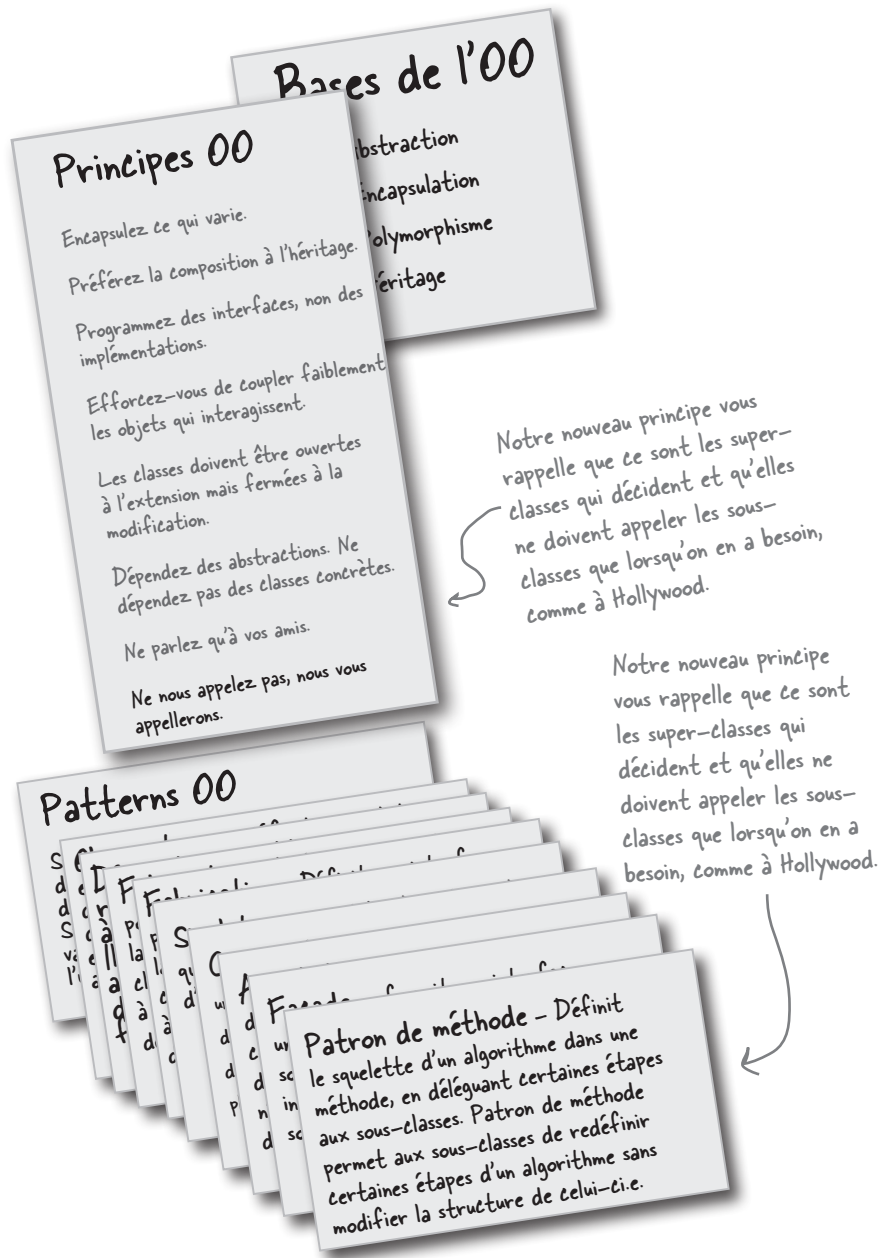 Bases de l'OO
bstraction
ncapsulation
olymorphisme
éritage
Principes OO
Encapsulez ce qui varie.
Préférez la composition à l'héritage.
Programmez des interfaces, non des
implémentations.
Efforcez-vous de coupler faiblement
les objets qui interagissent.
Les classes doivent être ouvertes
à l'extension mais fermées à la
modification.
Dépendez des abstractions. Ne
dépendez pas des classes concrètes.
Ne parlez qu'à vos amis.
Ne nous appelez pas, nous vous
appellerons.
Notre nouveau principe vous
rappelle que ce sont les super-
classes qui décident et qu'elles
ne doivent appeler les sous-
classes que lorsqu'on en a besoin,
comme à Hollywood.
Notre nouveau principe
vous rappelle que ce sont
les super-classes qui
décident et qu'elles ne
doivent appeler les sous-
classes que lorsqu'on en a
besoin, comme à Hollywood.
Patterns OO
Patron de méthode - Définit
le squelette d'un algorithme dans une
méthode, en déléguant certaines étapes
aux sous-classes. Patron de méthode
permet aux sous-classes de redéfinir
certaines étapes d'un algorithme sans
modifier la structure de celui-ci.e.